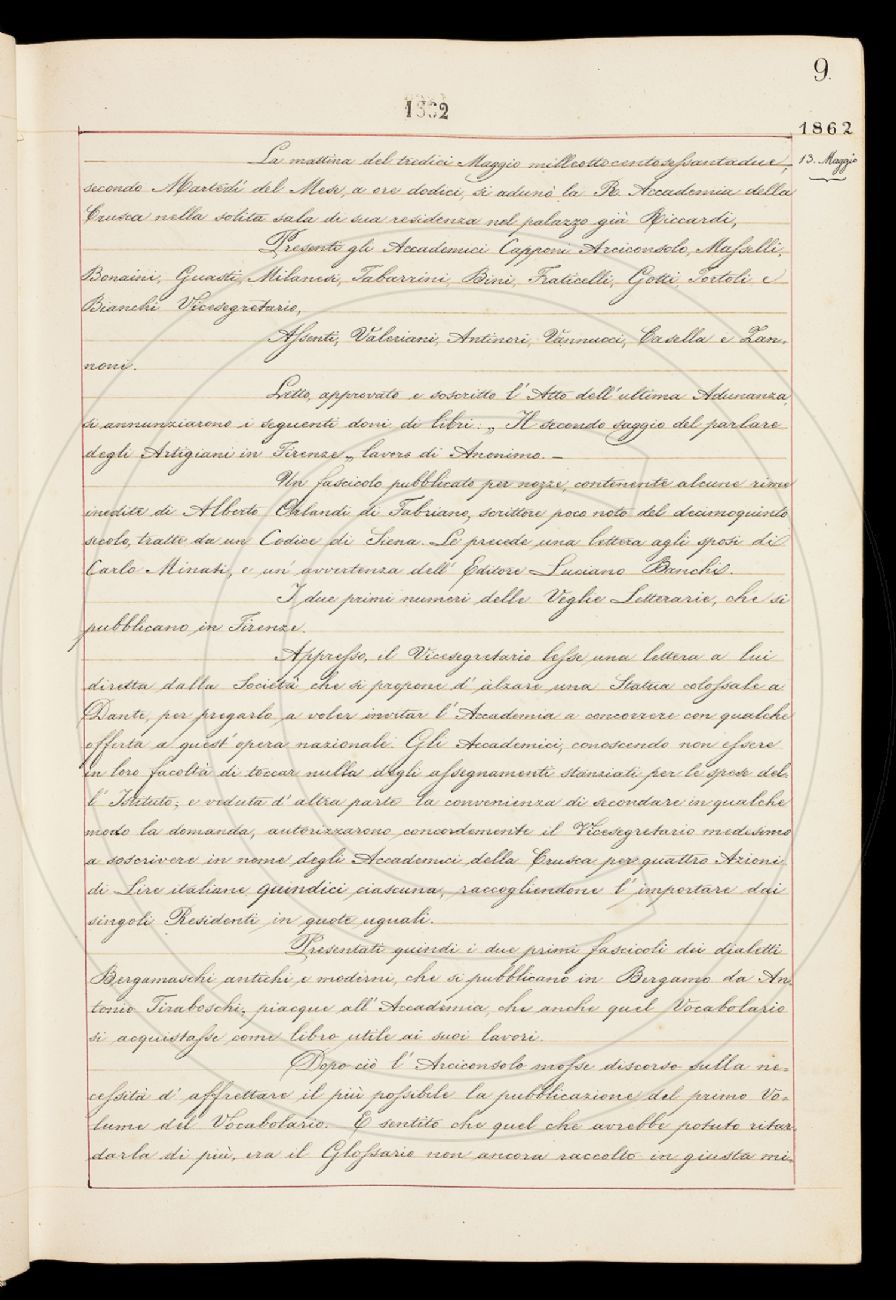 9
1862
1862
13. Maggio
La mattina del tredici Maggio milleottocentosessantadue,
secondo Martedi' del Mese, a ore dodici, si adunò la R. Accademia della
Crusca nella solita sala di sua residenza nel palazzo già Riccardi,
Presenti gli Accademici Capponi Arciconsolo, Masselli,
Bonaini, Guasti, Milanesi, Tabarrini, Bini, Fraticelli, Gotti Tortoli e
Bianchi Vicesegretario,
Assenti, Valeriani, Antinori, Vannucci, Casella e Zan-
noni.
Letto, approvato e soscritto l' Atto dell' ultima Adunanza,
si annunziarono i seguenti doni di libri: „ Il secondo saggio del parlare
degli Artigiani in Firenze „ lavoro di Anonimo. —
Un fascicolo pubblicato per nozze, contenente alcune rime
inedite di Alberto Orlandi di Fabriano, scrittore poco noto del decimoquinto
secolo, tratte da un Codice di Siena. Le precede una lettera agli sposi di
Carlo Minati, e un' avvertenza dell' Editore Luciano Banchi.
I due primi numeri delle Veglie Letterarie, che si
pubblicano in Firenze.
Appresso, il Vicesegretario lesse una lettera a lui
diretta dalla Società che si propone d' alzare una Statua colossale a
Dante, per pregarlo a voler invitar l' Accademia a concorrere con qualche
offerta a quest' opera nazionale. Gli Accademici, conoscendo non essere
in loro facoltà di toccar nulla degli assegnamenti stanziati per le spese del-
l' Istituto; e veduta d' altra parte la convenienza di secondare in qualche
modo la domanda, autorizzarono concordemente il Vicesegretario medesimo
a soscrivere in nome degli Accademici della Crusca per quattro Azioni
di Lire italiane quindici ciascuna, raccogliendone l' importare dai
singoli Residenti in quote uguali.
Presentati quindi i due primi fascicoli dei dialetti
Bergamaschi antichi e moderni, che si pubblicano in Bergamo da An-
tonio Tiraboschi; piacque all' Accademia, che anche quel Vocabolario
si acquistasse come libro utile ai suoi lavori.
Dopo ciò l' Arciconsolo mosse discorso sulla ne-
cessità d' affrettare il più possibile la pubblicazione del primo Vo-
lume del Vocabolario. E sentito che quel che avrebbe potuto ritar-
darla di più, era il Glossario non ancora raccolto in giusta mi-